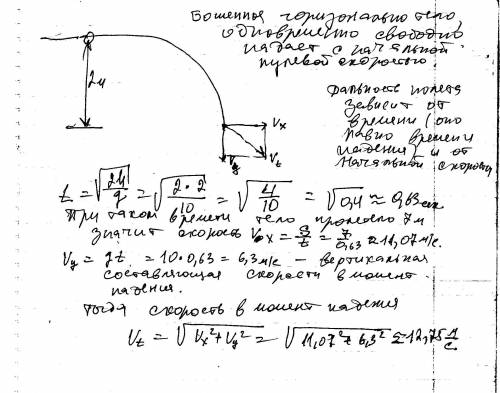 Бошенная горизонально тело,
одновременно свободно
падает с начальной
нулевой скоростью
Дальность полета
зависит от
времени (оно
равно времени
падения) и от
начальной скорости
2м
Vx
Vy
Vt
t = √2H/g = √2·2/10 = √4/10 = √0,4 ≈ 0,63 сек
При таком времени тело пролетело 7м
значит скорость Vox = S/t = 7/0,63 ≈ 11,07 м/с.
Vy = gt = 10·0,63 = 6,3 м/с — вертикальная
составляющая скорости в момент
падения.
Тогда скорость в момент падения
Vt = √Vx²+Vy² = √11,07²+6,3² ≈ 12,75 м/с